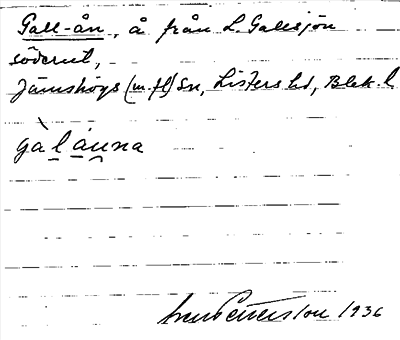 Gall-ån, å från L. Gallsjön
söderut,
Jämshögs (m. fl) Sn, Listers hd, Blek. l
gàlánna
1936